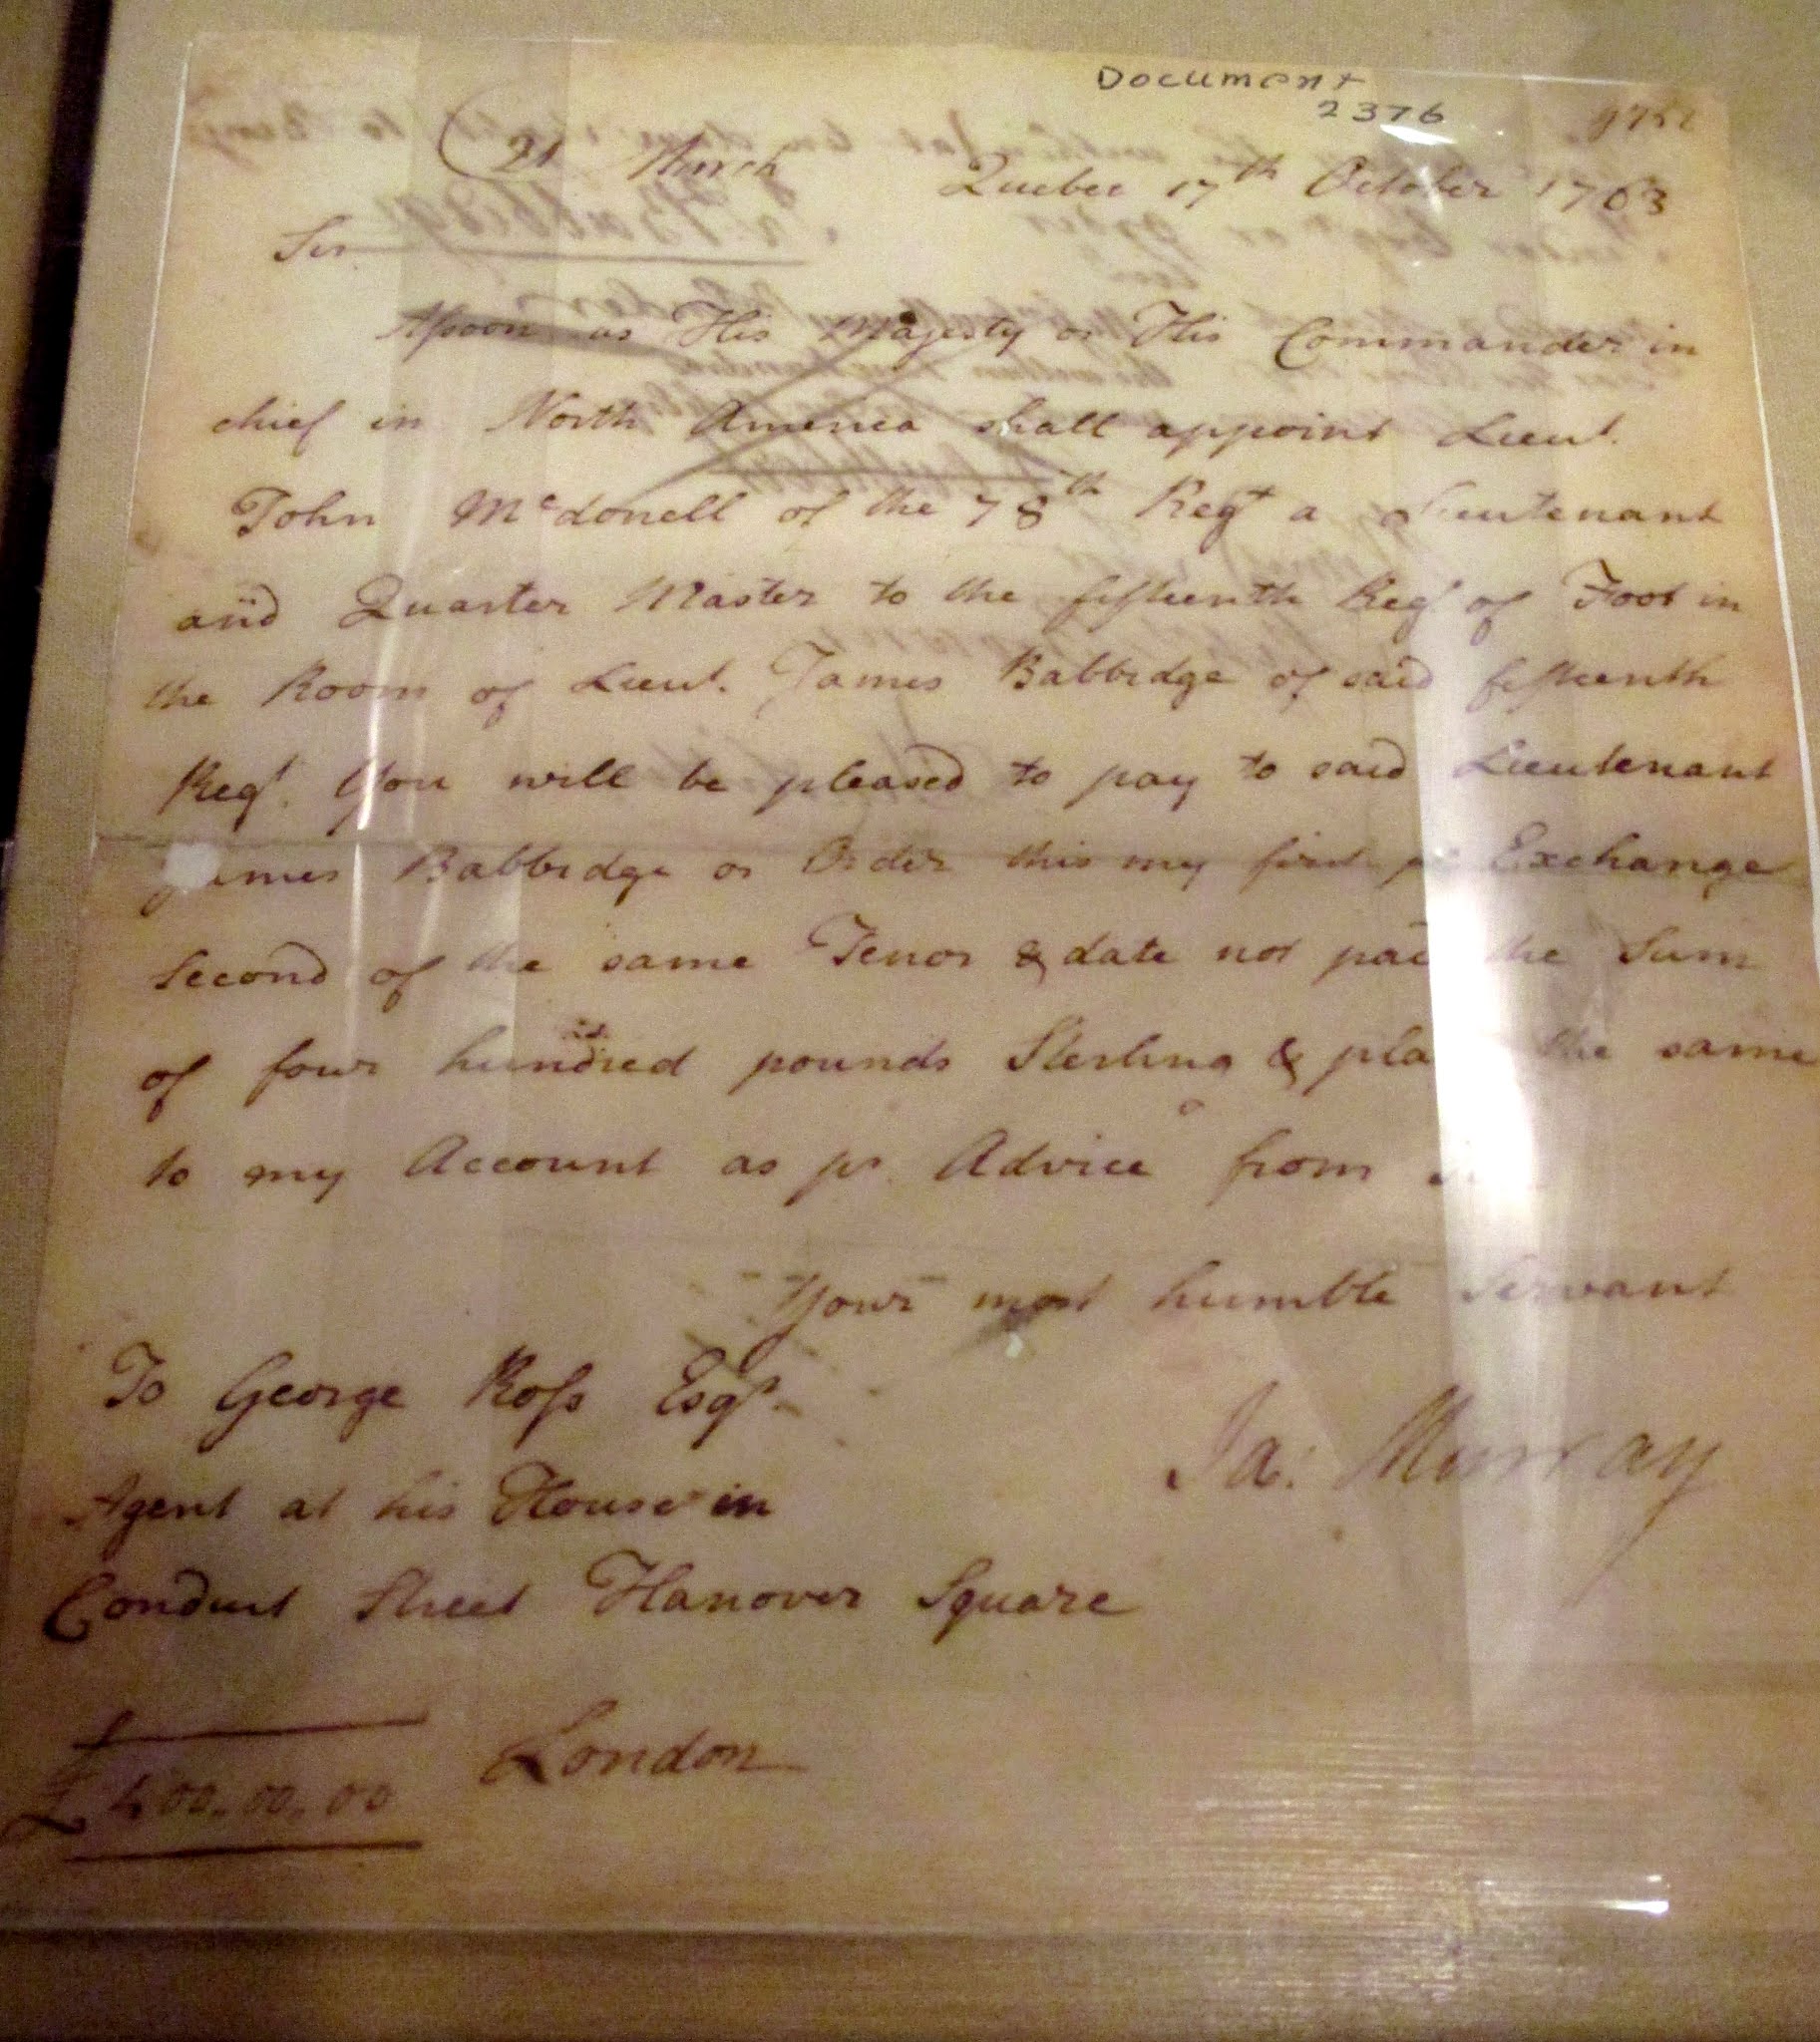 Document
2376
21 March
Quebec 17th October 1763
Sir
Assoon as His Majesty or His Commander in
chief in North America shall appoint Lieut.
John Mcdonell of the 78th Regt a Lieutenant
and Quarter Master to the fifteenth Regt of Foot in
the Room of Lieut. James Babbidge of said fifteenth
Regt. You will be pleased to pay to said Lieutenant
James Babbidge or Order this my first pr Exchange
Second of the same Tenor & date not paid the Sum
of four hundred pounds Sterling & place the same
to my Account as pr. Advice from
Your most humble Servant
To George Ross Esqr.
Ja: Murray
Agent at his House in
Conduit Street Hanover Square
London
£400..00..00